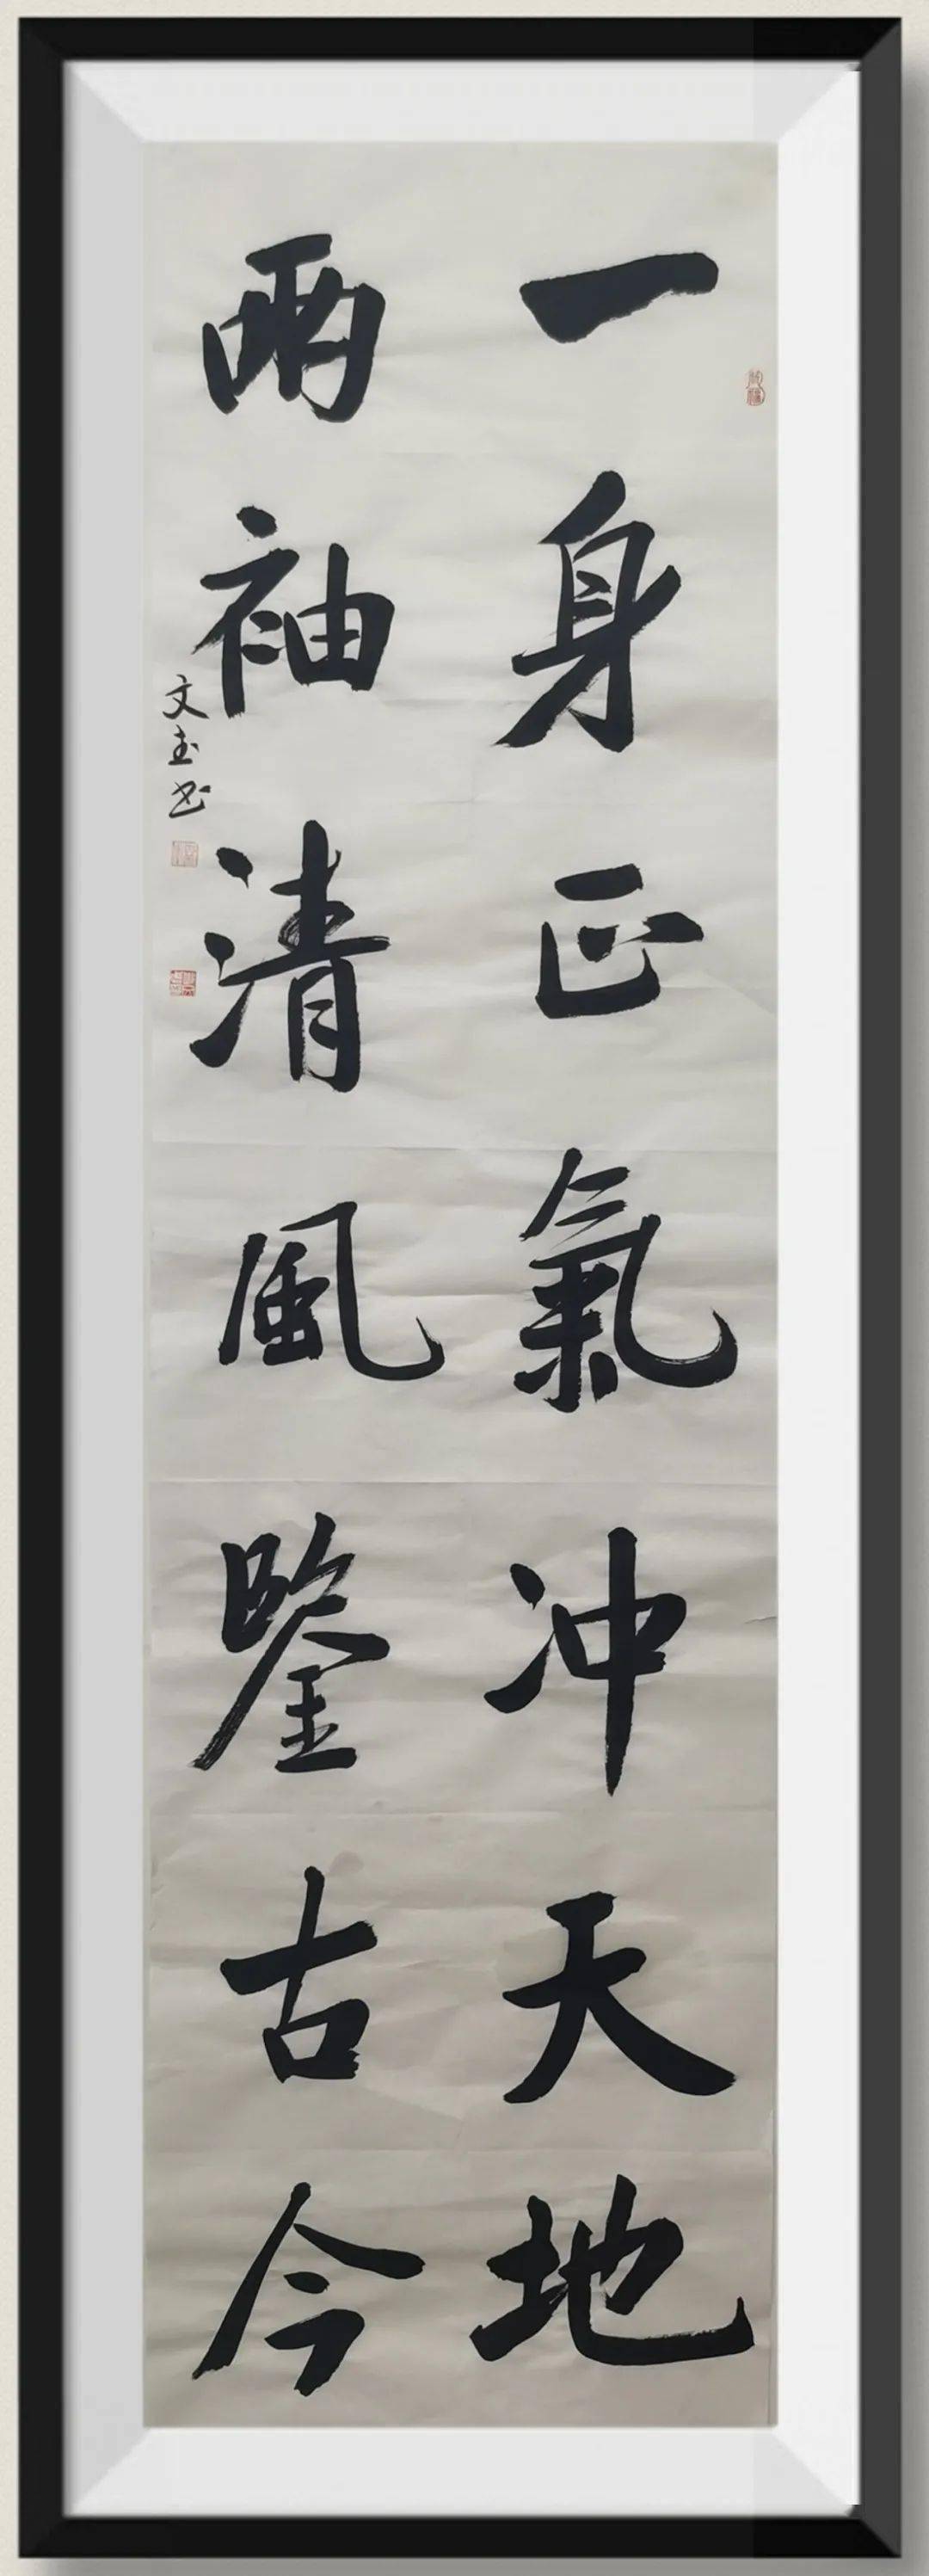 一身正氣冲天地
兩袖清風鑒古今
文玉书